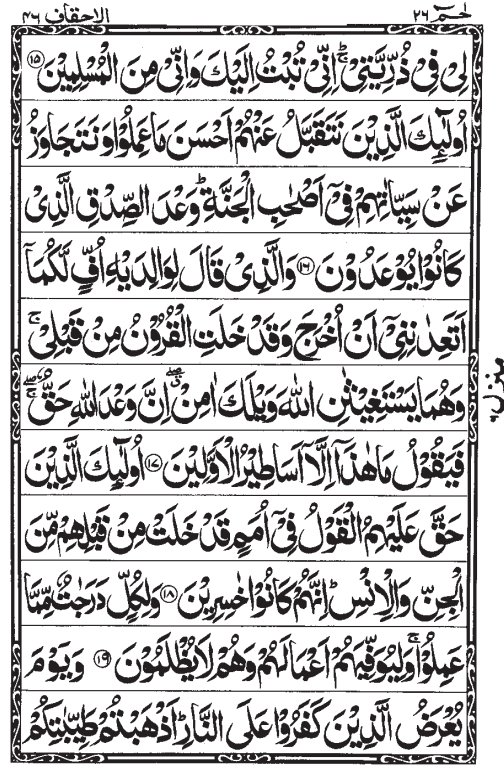 الاحقاف ٤٦
حٰمٓ ٢٦
لِیْ فِیْ ذُرِّیَّتِیْ ۚؕ اِنِّیْ تُبْتُ اِلَیْكَ وَاِنِّیْ مِنَ الْمُسْلِمِیْنَ ۱۵
اُولٰٓئِكَ الَّذِیْنَ نَتَقَبَّلُ عَنْهُمْ اَحْسَنَ مَا عَمِلُوْا وَنَتَجَاوَزُ
عَنْ سَیِّاٰتِهِمْ فِیْۤ اَصْحٰبِ الْجَنَّةِ ؕ وَعْدَ الصِّدْقِ الَّذِیْ
كَانُوْا یُوْعَدُوْنَ ۱۶ وَالَّذِیْ قَالَ لِوَالِدَیْهِ اُفٍّ لَّكُمَاۤ
اَتَعِدٰنِنِیْۤ اَنْ اُخْرَجَ وَقَدْ خَلَتِ الْقُرُوْنُ مِنْ قَبْلِیْ ۚ
وَهُمَا یَسْتَغِیْثٰنِ اللّٰهَ وَیْلَكَ اٰمِنْ ۖۗ اِنَّ وَعْدَ اللّٰهِ حَقٌّ ۖۚ
فَیَقُوْلُ مَا هٰذَاۤ اِلَّاۤ اَسَاطِیْرُ الْاَوَّلِیْنَ ۱۷ اُولٰٓئِكَ الَّذِیْنَ
حَقَّ عَلَیْهِمُ الْقَوْلُ فِیْۤ اُمَمٍ قَدْ خَلَتْ مِنْ قَبْلِهِمْ مِّنَ
الْجِنِّ وَالْاِنْسِ ؕ اِنَّهُمْ كَانُوْا خٰسِرِیْنَ ۱۸ وَلِكُلٍّ دَرَجٰتٌ مِّمَّا
عَمِلُوْا ۚ وَلِیُوَفِّیَهُمْ اَعْمَالَهُمْ وَهُمْ لَا یُظْلَمُوْنَ ۱۹ وَیَوْمَ
یُعْرَضُ الَّذِیْنَ كَفَرُوْا عَلَی النَّارِ ؕ اَذْهَبْتُمْ طَیِّبٰتِكُمْ